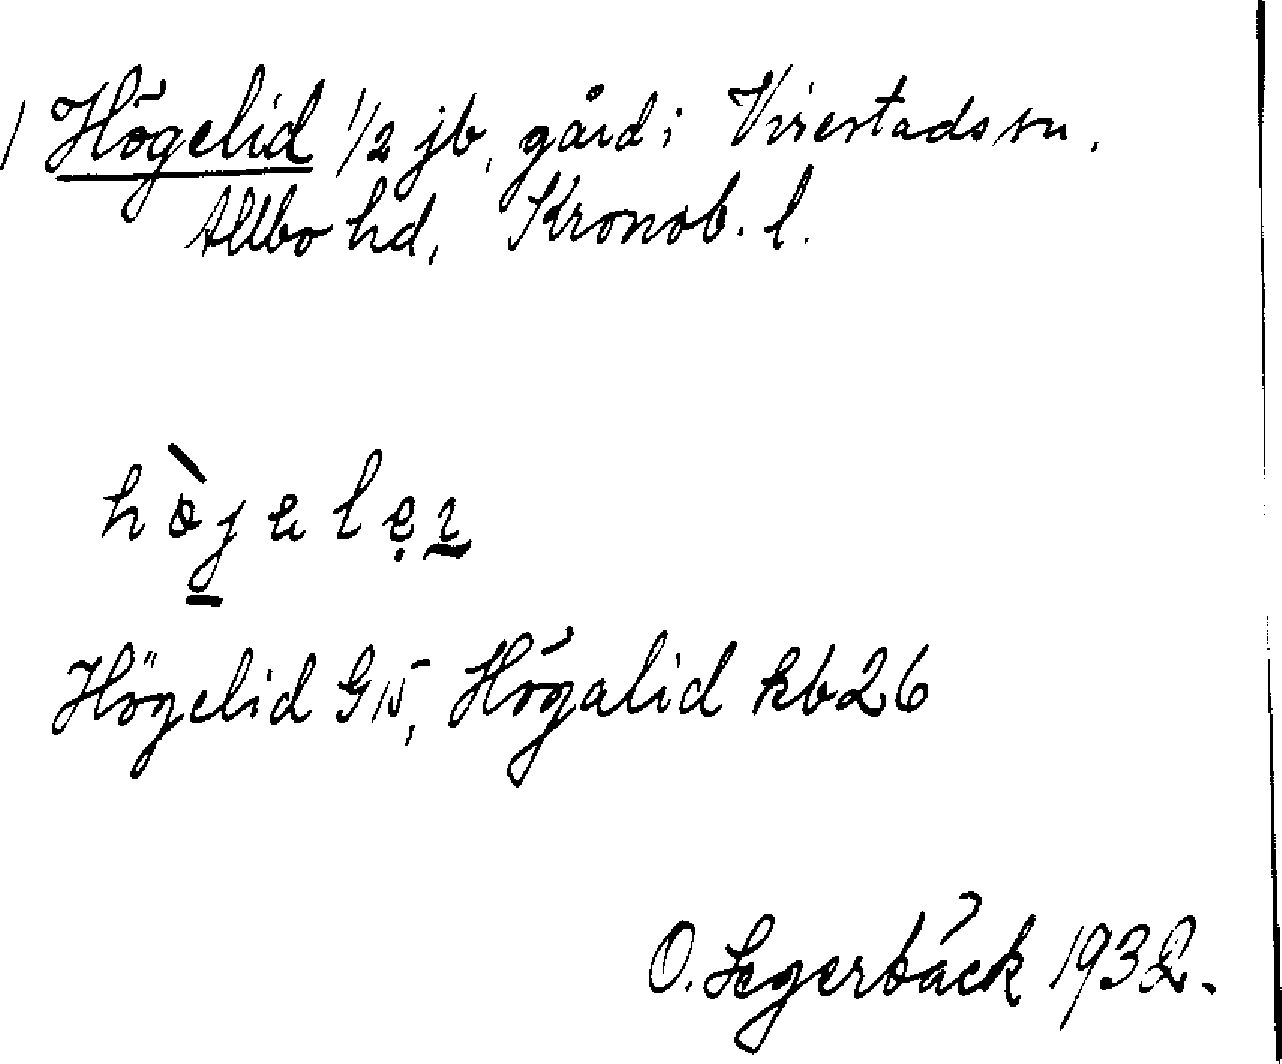 1 Högelid 1/2 jb, gård i Virestads sn.
Allbo hd, Kronob. l.
Högelid G15, Högalid kb26
O. Segerbäck 1932.